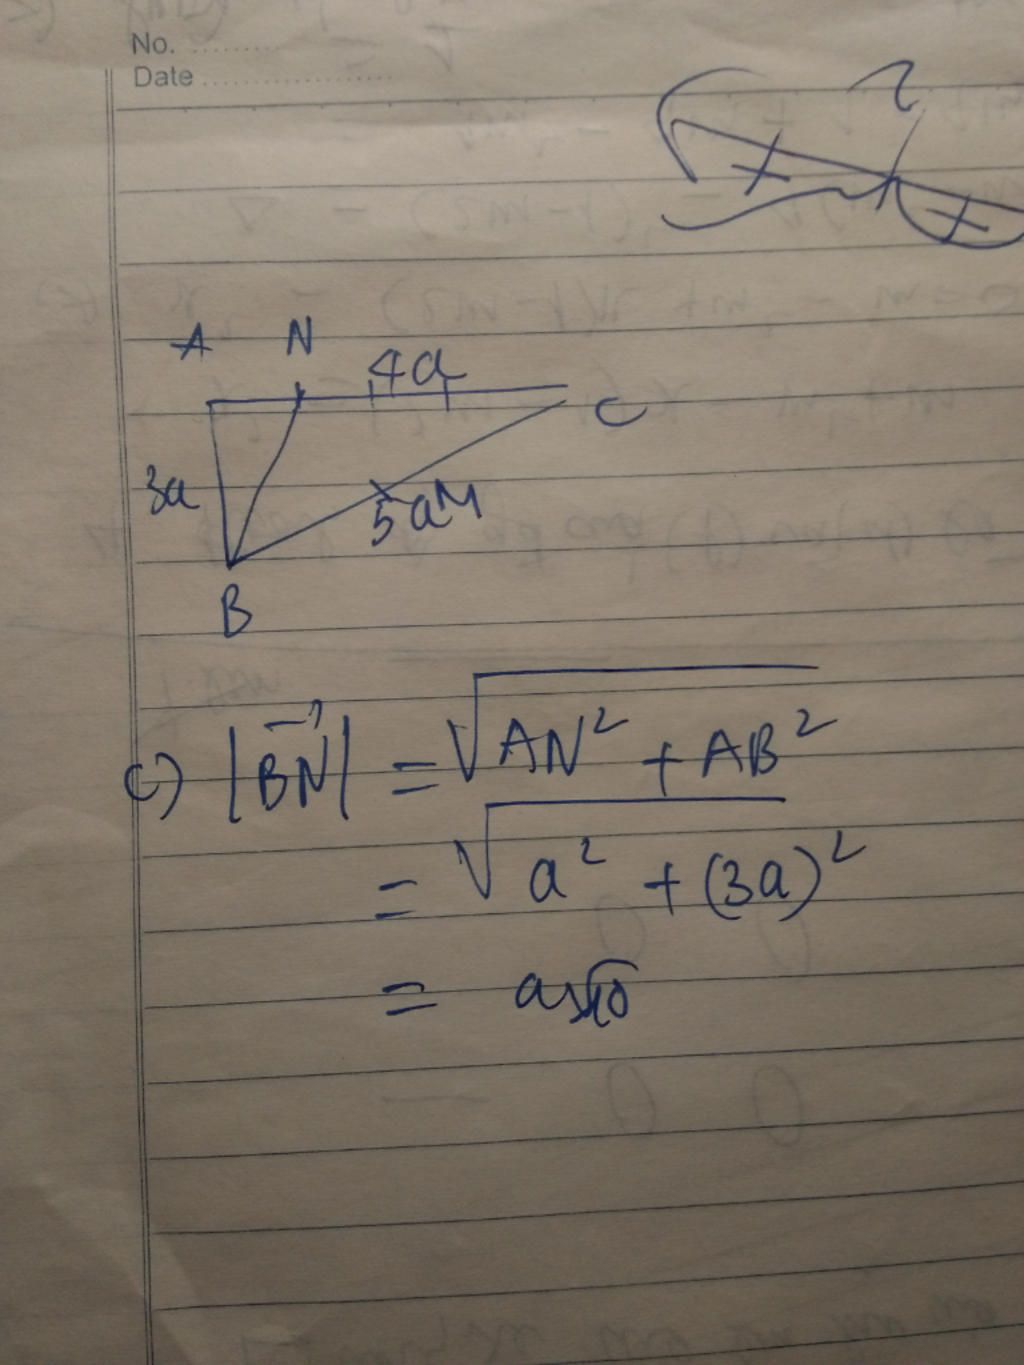 No. ............
Date ........................
A N
4a
C
3a
5a M
B
c) |BN⃗| = √(AN² + AB²)
= √(a² + (3a)²)
= a√10